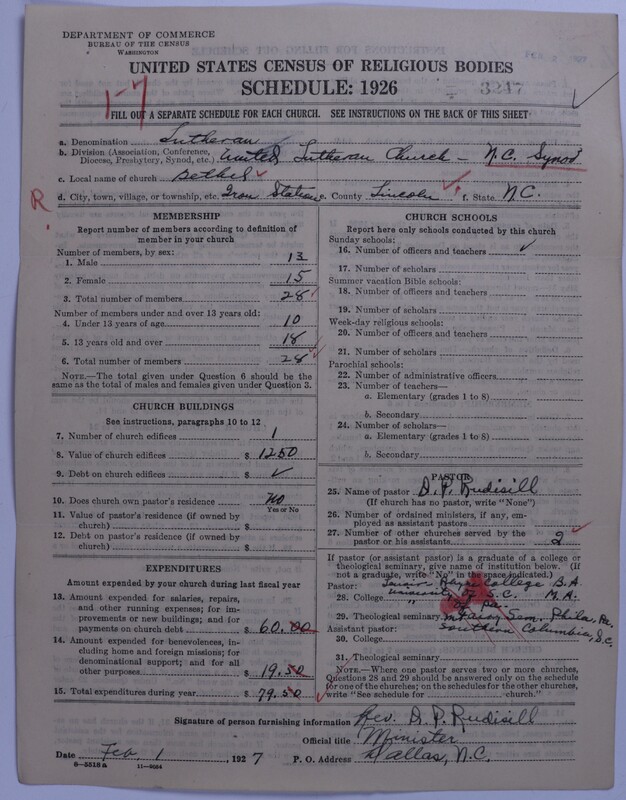 DEPARTMENT OF COMMERCE
BUREAU OF THE CENSUS
WASHINGTON
UNITED STATES CENSUS OF RELIGIOUS BODIES
SCHEDULE: 1926
3247
1-7
FILL OUT A SEPARATE SCHEDULE FOR EACH CHURCH. SEE INSTRUCTIONS ON THE BACK OF THIS SHEET
a. Denomination Lutheran
b. Division (Association, Conference, Diocese, Presbytery, Synod, etc.) United Lutheran Church - N.C. Synod
c. Local name of church Bethel
R
d. City, town, village, or township, etc. Iron Station e. County Lincoln f. State N.C.
MEMBERSHIP
Report number of members according to definition of
member in your church
Number of members, by sex:
1. Male 13
2. Female 15
3. Total number of members 28
Number of members under and over 13 years old:
4. Under 13 years of age 10
5. 13 years old and over 18
6. Total number of members 28
NOTE.—The total given under Question 6 should be the
same as the total of males and females given under Question 3.
CHURCH BUILDINGS
See instructions, paragraphs 10 to 12
7. Number of church edifices 1
8. Value of church edifices $ 1250
9. Debt on church edifices $ ✓
10. Does church own pastor's residence? No
Yes or No
11. Value of pastor's residence (if owned by
church) $
12. Debt on pastor's residence (if owned by
church) $
EXPENDITURES
Amount expended by your church during last fiscal year
13. Amount expended for salaries, repairs,
and other running expenses; for im-
provements or new buildings; and for
payments on church debt $ 60.00
14. Amount expended for benevolences, in-
cluding home and foreign missions; for
denominational support; and for all
other purposes $ 19.50
15. Total expenditures during year $ 79.50
CHURCH SCHOOLS
Report here only schools conducted by this church
Sunday schools:
16. Number of officers and teachers ✓
17. Number of scholars
Summer vacation Bible schools:
18. Number of officers and teachers
19. Number of scholars
Week-day religious schools:
20. Number of officers and teachers
21. Number of scholars
Parochial schools:
22. Number of administrative officers
23. Number of teachers—
a. Elementary (grades 1 to 8)
b. Secondary
24. Number of scholars—
a. Elementary (grades 1 to 8)
b. Secondary
PASTOR
25. Name of pastor D. P. Rudisill
(If church has no pastor, write "None")
26. Number of ordained ministers, if any, em-
ployed as assistant pastors
27. Number of other churches served by the
pastor or his assistants 2
If pastor (or assistant pastor) is a graduate of a college or
theological seminary, give name of institution below. (If
not a graduate, write "No" in the space indicated.)
Pastor: Lenoir Rhyne College B.A.
28. College University of S.C. M.A.
" of Pa.
29. Theological seminary Sem. Phila. Pa.
Assistant pastor: Southern Columbia, S.C.
30. College
31. Theological seminary
NOTE.—Where one pastor serves two or more churches,
Questions 28 and 29 should be answered only on the schedule
for one of the churches; on the schedules for the other churches,
write "See schedule for church."
Signature of person furnishing information Rev. D. P. Rudisill
Official title Minister
Date Feb. 1, 1927 P. O. Address Dallas, N.C.
8-5518 a 11-9664